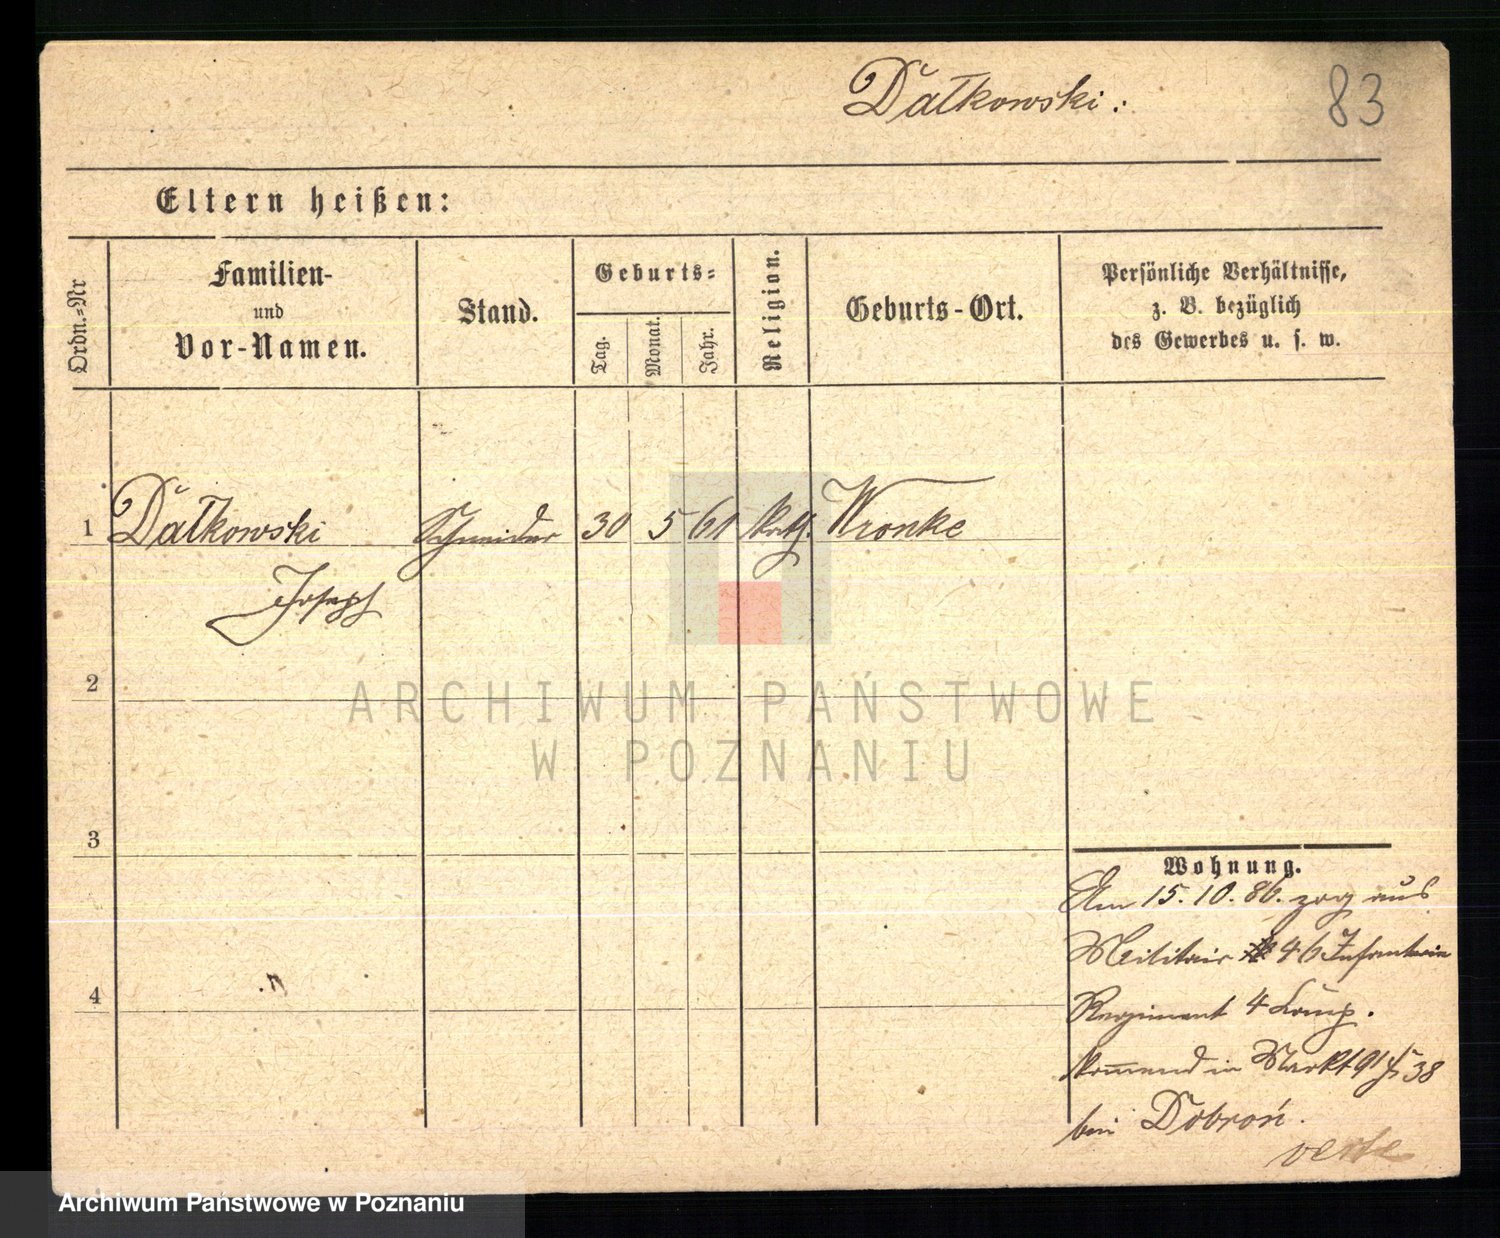 Dałkowski.
83
Eltern heißen:
Ordn.=Nr
Familien-
und
Vor-Namen.
Stand.
Geburts=
Tag.
Monat.
Jahr.
Religion.
Geburts-Ort.
Persönliche Verhältnisse,
z. B. bezüglich
des Gewerbes u. s. w.
1 Dałkowski Schneider 30 5 61 kath. Wronke
Joseph
2
ARCHIWUM PAŃSTWOWE
W POZNANIU
3
Wohnung.
Am 15. 10. 86. zog aus
Militair 46 Infanterie
4
Regiment 4 Comp.
kom̅end in Markt 91
bei Dobroń.
verte
Archiwum Państwowe w Poznaniu